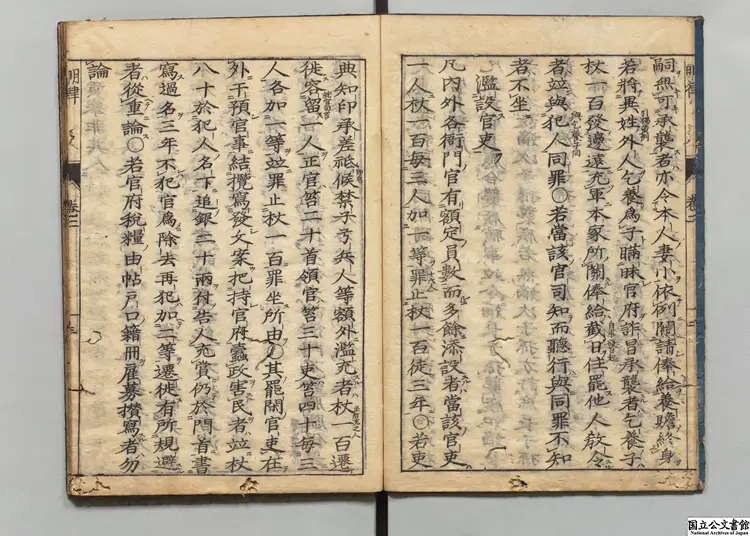 嗣無可承襲者亦令本人妻小依例關請俸給養贍終身
若將異姓外人乞養爲子瞞昧官府詐冒承襲者乞養子
杖一百發邊遠充軍本家所關俸給截日住罷他人敎令
者竝與犯人同罪○若當該官司知而聽行與同罪不知
者不坐
濫設官吏
凡內外各衙門官有額定員數而多餘添設者當該官吏
一人杖一百每三人加一等罪止杖一百徒三年○若吏
典知印承差祗候禁子弓兵人等額外濫充者杖一百遷
徙容留一人正官笞二十首領官笞三十吏笞四十每三
人各加一等竝罪止杖一百罪坐所由○其罷閑官吏在
外干預官事結攬寫發文案把持官府蠹政害民者竝杖
八十於犯人名下追銀二十兩付告人充賞仍於門首書
寫過名三年不犯官爲除去再犯加二等遷徙有所規避
者從重論○若官府稅糧由帖戶口籍冊雇募攢寫者勿
論
明律
卷二
国立公文書館
National Archives of Japan